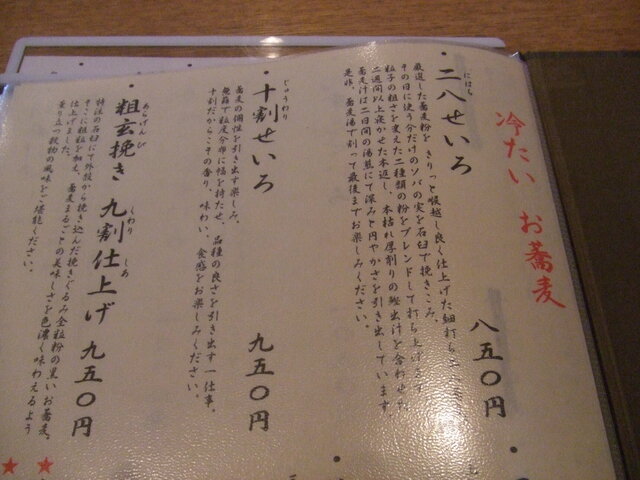 冷たい お蕎麦
二八せいろ 八五〇円
にはち
厳選した蕎麦粉を きりっと喉越し良く仕上げた細打ち
その日に使う分だけのソバの実を石臼で挽きこみ、
粒子の粗さを変えた二種類の粉をブレンドして打ち上げます
二週間以上寝かせた本返し、本枯れ厚削りの鰹出汁を合わせた
蕎麦汁は二日間の湯煎にて深みと円やかさを引き出しています。
是非、蕎麦湯で割って最後までお楽しみください。
十割せいろ 九五〇円
じゅうわり
蕎麦の個性を引き出す楽しみ。
無篩で粒度分布に幅を持たせ、品種の良さを引き出す一仕事。
十割だからこその香り、味わい、食感をお楽しみください。
粗玄挽き 九割仕上げ 九五〇円
あらげんび くわり しあ
特注の石臼にて外殻から挽き込んだ挽きぐるみ全粒粉の黒いお蕎麦。
そこに粗粒を加え、蕎麦まるごとの美味しさを色濃く味わえるよう
仕上げました。
薫り立つ穀物の風味をご堪能ください。